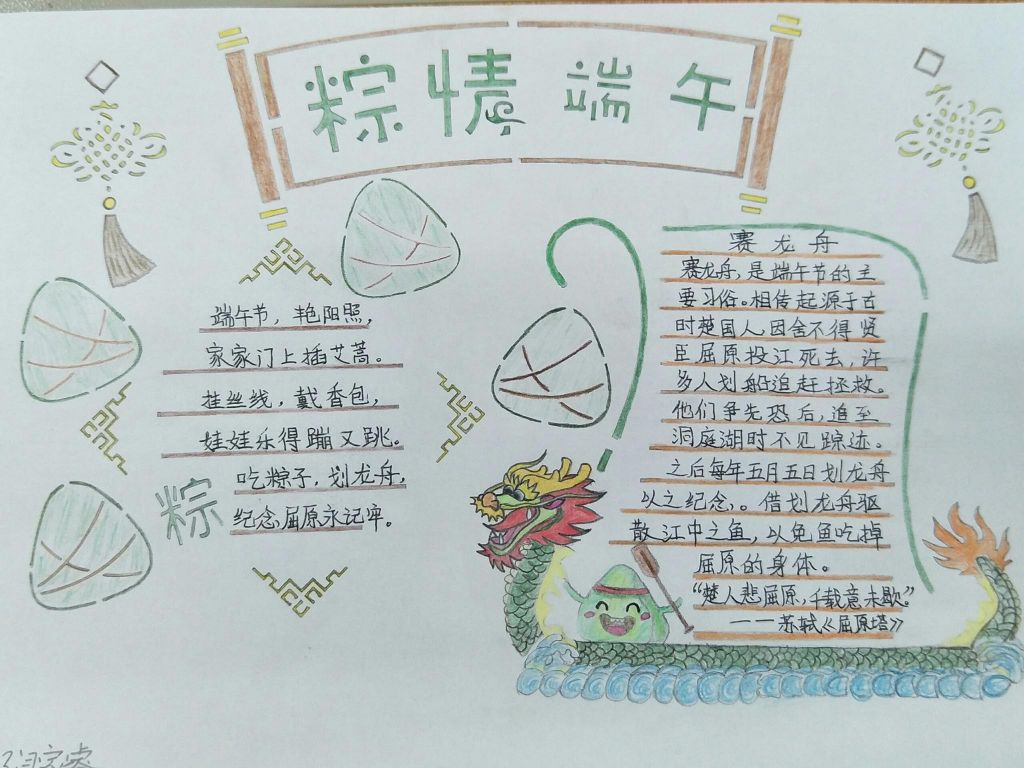 粽情端午
端午节，艳阳照，
家家门上插艾蒿。
挂丝线，戴香包，
娃娃乐得蹦又跳。
吃粽子，划龙舟，
纪念屈原永记牢。
粽
赛龙舟
赛龙舟，是端午节的主
要习俗。相传起源于古
时楚国人因舍不得贤
臣屈原投江死去，许
多人划船追赶拯救。
他们争先恐后，追至
洞庭湖时不见踪迹。
之后每年五月五日划龙舟
以之纪念，。借划龙舟驱
散江中之鱼，以免鱼吃掉
屈原的身体。
“楚人悲屈原，千载意未歇。”
——苏轼《屈原塔》